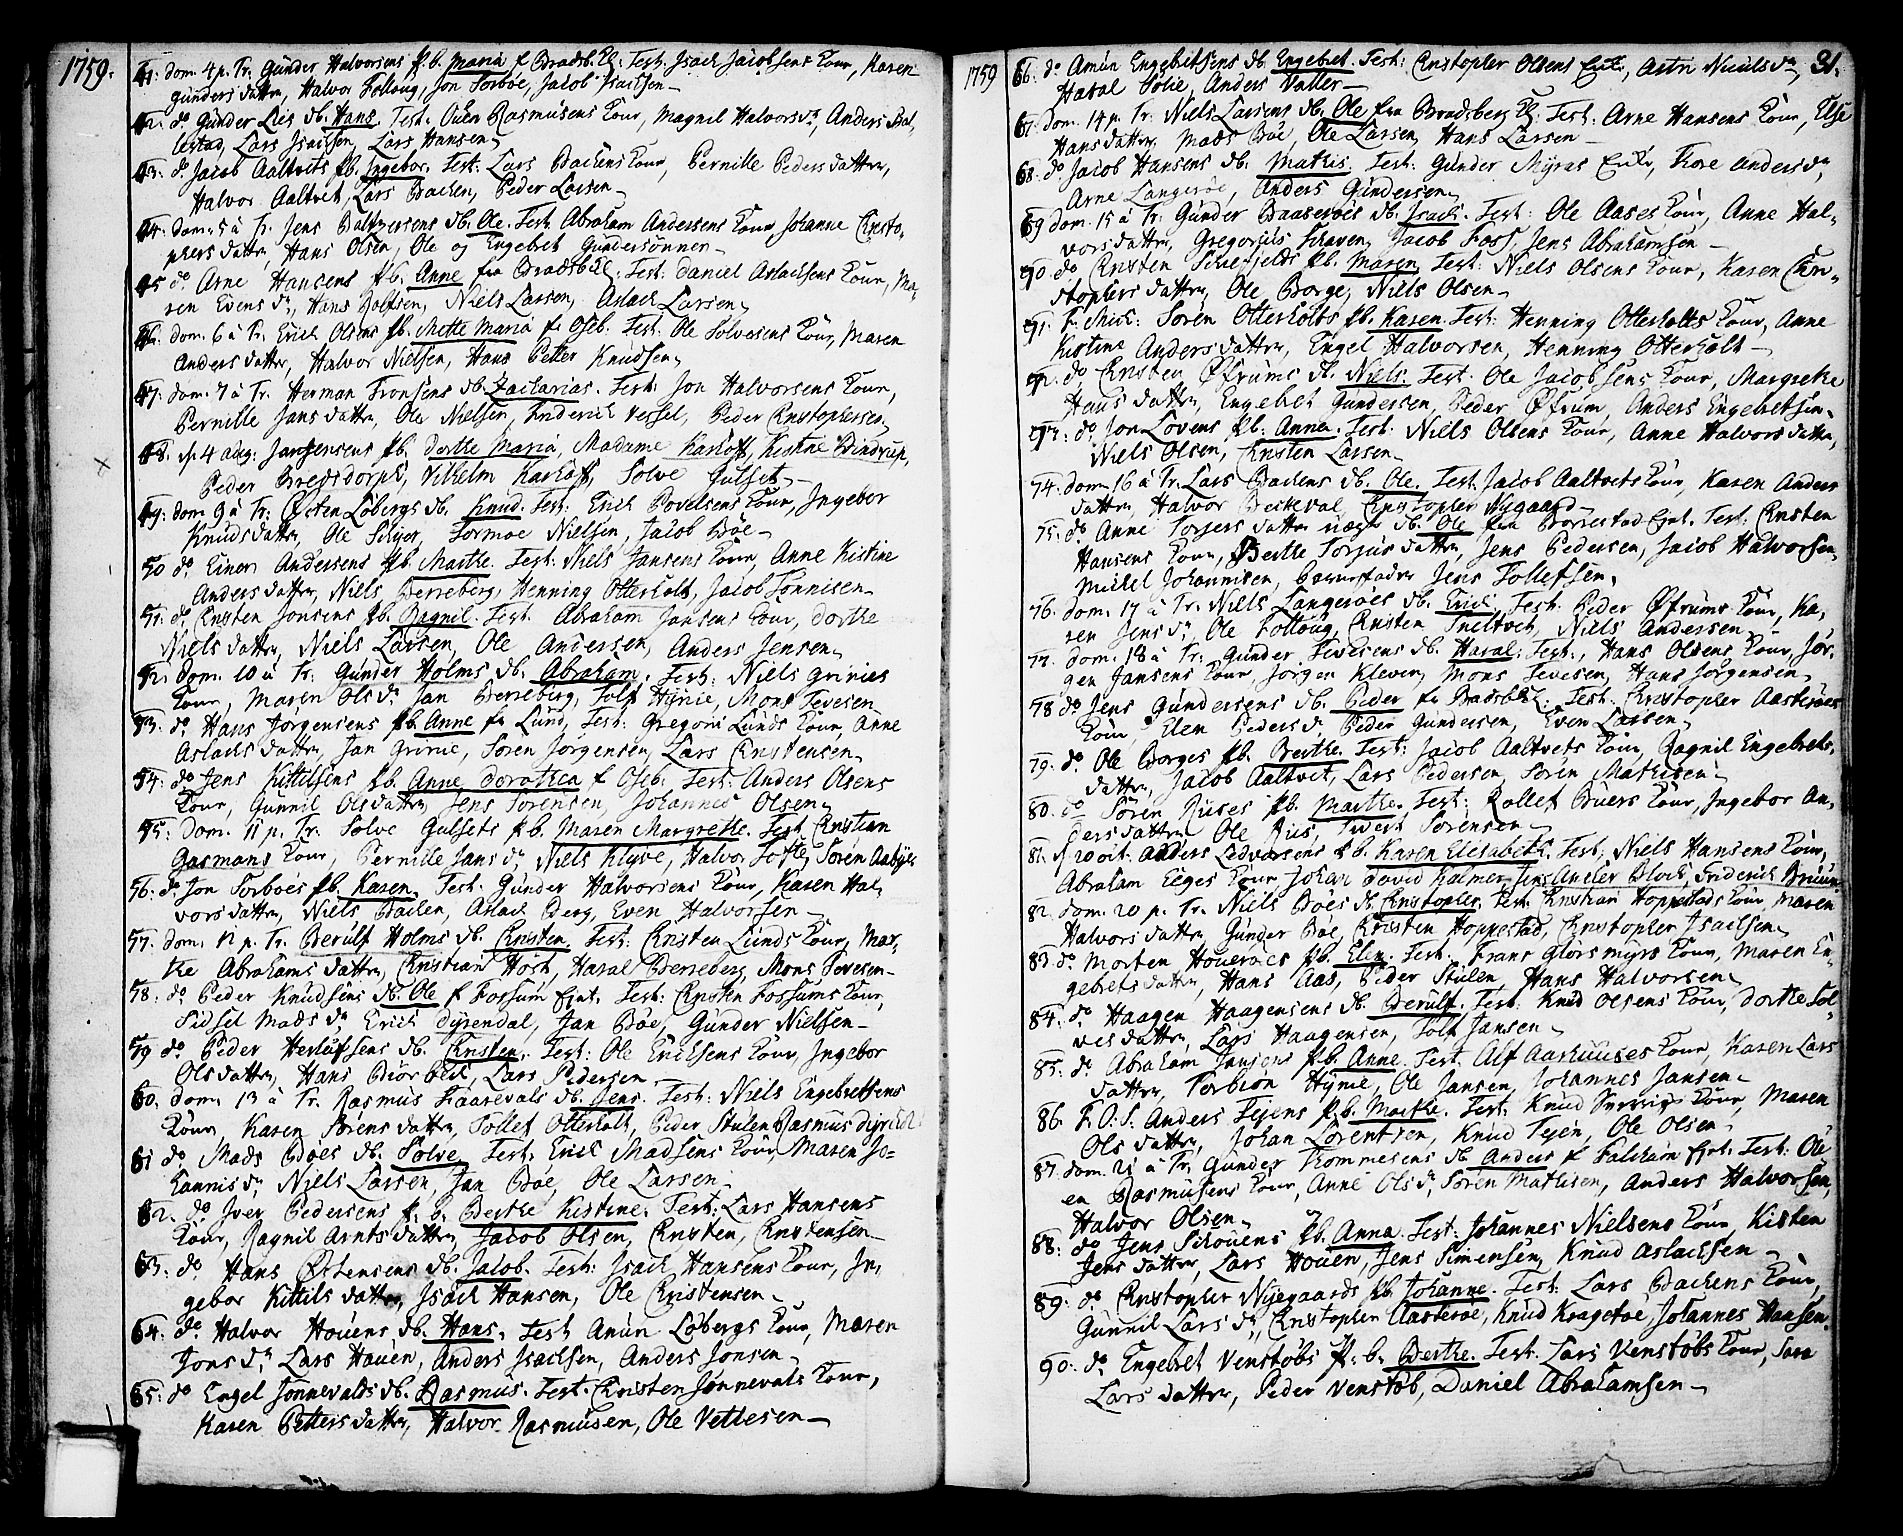 1759.
41. dom. 4 p. Tr. Gunder Halvorsens pb. Maria f Bradsb. Test: Isach Jacobsens Kone, Karen
Gunders datter, Halvor Folloug, Jon Torböe, Jacob Isachsen
42. do Gunder Lies db. Hans. Test. Ouen Rasmusens Kone, Magnil Halvorsdr, Anders Bal,
lestad, Lars Isachsen, Lars Hansen
43. do Jacob Aaltvets pb. Ingebor. Test: Lars Backens Kone, Pernille Peders datter,
Halvor Aaltvet, Lars Backen, Peder Larsen
44. dom. 5 a Tr. Jens Baltzersens db. Ole. Test. Abraham Andersens Kone, Johanne Cristo-
phers datter, Hans Olsen, Ole og Engebet Gundersönner
45 do Arne Hansens pb. Anne fra Bradsb. Test. Daniel Aslachsens Kone, Ma-
ren Evens dr, Hans Rolfsen, Niels Larsen, Aslach Larsen
46. dom. 6 a Tr. Erich Olsens pb. Mette Maria fr Oseb. Test. Ole Solvesens Kone, Maren
Anders datter, Halvor Nielsen, Hans Petter Knudsen
47. dom. 7 a Tr. Herman Fronsens db. Zacharias. Test. Jon Halvorsens Kone,
Pernille Jans datter, Ole Nielsen, Friderich Vessel, Peder Cristophersen
48. f. 4 aug. Jan Jensens pb. Dorthe Maria, Madame Karhoff, Kistine Bindrup,
Peder Bregsdorph, Vilhelm Karhoff, Solve Gulset
49. dom 9 a Tr. Östen Löbergs db. Knud. Test. Erich Povelsens Kone, Ingebor
Knuds datter, Ole Schyer, Tormoe Nielsen, Jacob Böe
50 do Einer Andersens pb. Marthe. Test. Niels Jansens Kone, Anne Kistine
Anders datter, Niels Berreberg, Henning Otterholt, Jacob Tonnisen
51. do Cristen Jonsens pb. Ragnil. Test. Abraham Jansens Kone, Dorthe
Niels datter, Niels Larsen, Ole Andersen, Anders Jensen
52. dom. 10 a Tr. Gunder Holms db. Abraham. Test. Niels Grinies
Kone, Maren Ols dr, Jan Berreberg, Tolf Hynie, Mons Tevesen
53. do Hans Jorgensens pb. Anne fr Lund, Test. Gregori Lunds Kone, Anne
Aslachs datter, Jan Grinie, Soren Jorgensen, Lars Cristensen
54. do Jens Kittilsens pb. Anne Dorothea f Oseb. Test. Anders Olsens
Kone, Gunnil Ols datter, Jens Sorensen, Johannes Olsen
55. dom. 11 p. Tr. Solve Gulsets pb. Maren Margrethe. Test. Cristian
Gasmans Kone, Pernille Jans dr, Niels Klyve, Halvor Tofte, Soren Aabyes
56. do Jon Torböes pb. Karen. Test. Gunder Halvorsens Kone, Karen Hal,
vors datter, Niels Backen, Aslach Berg, Even Halvorsen
57. dom. 12 p. Tr. Berulf Holms db. Cristen. Test. Cristen Lunds Kone, Mar,
the Abrahams datter, Cristian Holt, Haral Berreberg, Mons Tevesen
58. do Peder Knudsens db. Ole f Fossum Ejnt. Test. Cristen Fossums Kone,
Sidsel Mads dr, Erich Dyrendal, Jan Böe, Gunder Nielsen
59 do Peder Herlofsens db. Cristen. Test: Ole Erichsens Kone, Ingebor
Ols datter, Hans Biörbech, Lars Pedersen
60. dom. 13 a Tr. Rasmus Faarevals db. Jens. Test. Niels Engebretsens
Kone, Karen Sörens datter, Tollef Otterholt, Peder Stulen Rasmus Dyrendal
61 do Mads Böes db. Solve. Test. Erich Madsens Kone, Maren Jo-
hannis dr, Niels Larsen, Jan Böe, Ole Larsen
62. do Iver Pedersens p. b. Berthe Kistine. Test: Lars Hansens
Kone, Ragnil Arnts datter, Jacob Olsen, Cristen Cristensen
63. do Hans Östensens db. Jacob. Test: Isach Hansens Kone, In,
gebor Kittils datter, Isach Hansen, Ole Cristensen
64. do Halvor Houens db. Hans. Test. Amun Löbergs Kone, Maren
Jons dr, Lars Houen, Anders Isachsen, Anders Jonsen
65. do Engel Sonnevalds db. Rasmus. Test. Cristen Sonnevals Kone,
Karen Petters datter, Halvor Rasmusen, Ole Vettesen
1759
31.
66. do Amun Engebretsens db. Engebret. Test: Cristopher Olsens Enke, Astri Niels dr,
Haral Solie, Anders Valler
67. dom. 14 p. Tr. Niels Larsens db. Ole fra Bradsberg. Test. Arne Hansens Kone, Else
Hans datter, Mads Böe, Ole Larsen, Hans Larsen
68. do Jacob Hansens db. Mathis. Test. Gunder Myras Enke, Thore Anders dr,
Arne Langeröe, Anders Gundersen
69 dom. 15 a Tr. Gunder Baaseröes db. Isach. Test: Ole Aases Kone, Anne Hal-
vors datter, Gregorius Schaven, Jacob Foss, Jens Abrahamsen
70. do Cristen Schiefjelds pb. Maren. Test. Niels Olsens Kone, Karen Cri-
stophers datter, Ole Borge, Niels Olsen
71. F. Mich: Soren Otterholts pb. Karen. Test. Henning Otterholts Kone, Anne
Kistine Anders datter, Engel Halvorsen, Henning Otterholt
72. do Cristen Öfrums db. Niels. Test. Ole Jacobsens Kone, Margrethe
Hans datter, Engebet Gundersen, Peder Öfrum, Anders Engebetsen
73. do Jon Lovens pb. Anne. Test. Niels Olsens Kone, Anne Halvors datter,
Niels Olsen, Cristen Larsen
74. dom 16 a Tr. Lars Backens db. Ole. Test. Jacob Aaltvets Kone, Karen Anders
datter, Halvor Becheval, Cristopher Nygaard
75. do Anne Torgers datter uægte db. Ole fra Borrestad Ejnt. Test. Cristen
Hansens Kone, Berthe Torjus datter, Jens Pedersen, Jacob Halvorsen,
Michel Johannisen, Barnefader Jens Tollefsen
76. dom. 17 a Tr. Niels Langeröes db. Erich. Test. Peder Öfrums Kone, Ka,
ren Jens dr, Ole Folloug, Cristen Tveitoch, Niels Andersen
77. dom. 18 a Tr. Gunder Tevesens db. Haral. Test., Hans Olsens Kone, Jör-
gen Jansens Kone Jorgen Kleven, Mons Tevesen, Hans Jorgensen
78 do Jens Gundersens db. Peder fr Bradsb. Test. Cristopher Aasteröes
Kone, Elen Peders dr, Peder Gundersen, Even Larsen
79. do Ole Borges pb. Berthe. Test: Jacob Aaltvets Kone, Ragnil Engebrets-
datter, Jacob Aaltvet, Lars Pedersen, Soren Mathisen
80. do Soren Riises pb. Marthe. Test: Rollef Bruers Kone, Ingebor An,
ders datter Ole Riis, Sivert Sorensen
81. f 20 oct. Anders Ledvorsens p b. Karen Elisabeth. Test. Niels Hansens Kone,
Abraham Eeges Kone Johan David Kalmer, Jens Ancher Bloch, Friderich Bruun
82. dom. 20 p. Tr. Niels Böes db. Cristopher. Test. Cristian Hoppestads Kone, Maren
Halvors datter, Gunder Böe, Cristen Hoppestad, Cristopher Isachsen
83. do Morten Houeröes pb. Elen. Test. Frans Glörsmyrs Kone, Maren En-
gebrets datter, Hans Aas, Peder Stulen, Hans Halvorsen
84. do Haagen Haagensens db. Berulf. Test. Knud Olsens Kone, Dorthe Sol-
ves datter, Lars Haagensen, Tolf Jansen
85. do Abraham Jansens pb. Anne. Test. Alf Aarhuuses Kone, Karen Lars
datter, Torbion Hynie, Ole Jansen, Johannes Jansen
86. F. O. S. Anders Tejens p. b. Marthe. Test. Knud Kone, Maren
Ols datter, Johan Lorentzen, Knud Tejen, Ole Olsen
87. dom. 21 a Tr. Gunder Trommesens db. Anders f Falchum Ejnt. Test. Ole
en Rasmusens Kone, Anne Ols dr, Soren Mathisen, Anders Halvorsen,
Halvor Olsen
88. do Jens Schouens pb. Anna. Test. Johannes Nielsens Kone, Kisten
Jens datter, Lars Houen, Jens Simensen, Knud Aslachsen
89. do Cristopher Nyegaards pb. Johanne. Test. Lars Backens Kone,
Gunnil Lars dr, Cristopher Aasteröe, Knud Kragetoe, Johannes Hansen
90. do Engebret Venstöbs p. b. Berthe. Test. Lars Venstöbs Kone, Sara
Lars datter, Peder Venstöb, Daniel Abrahamsen